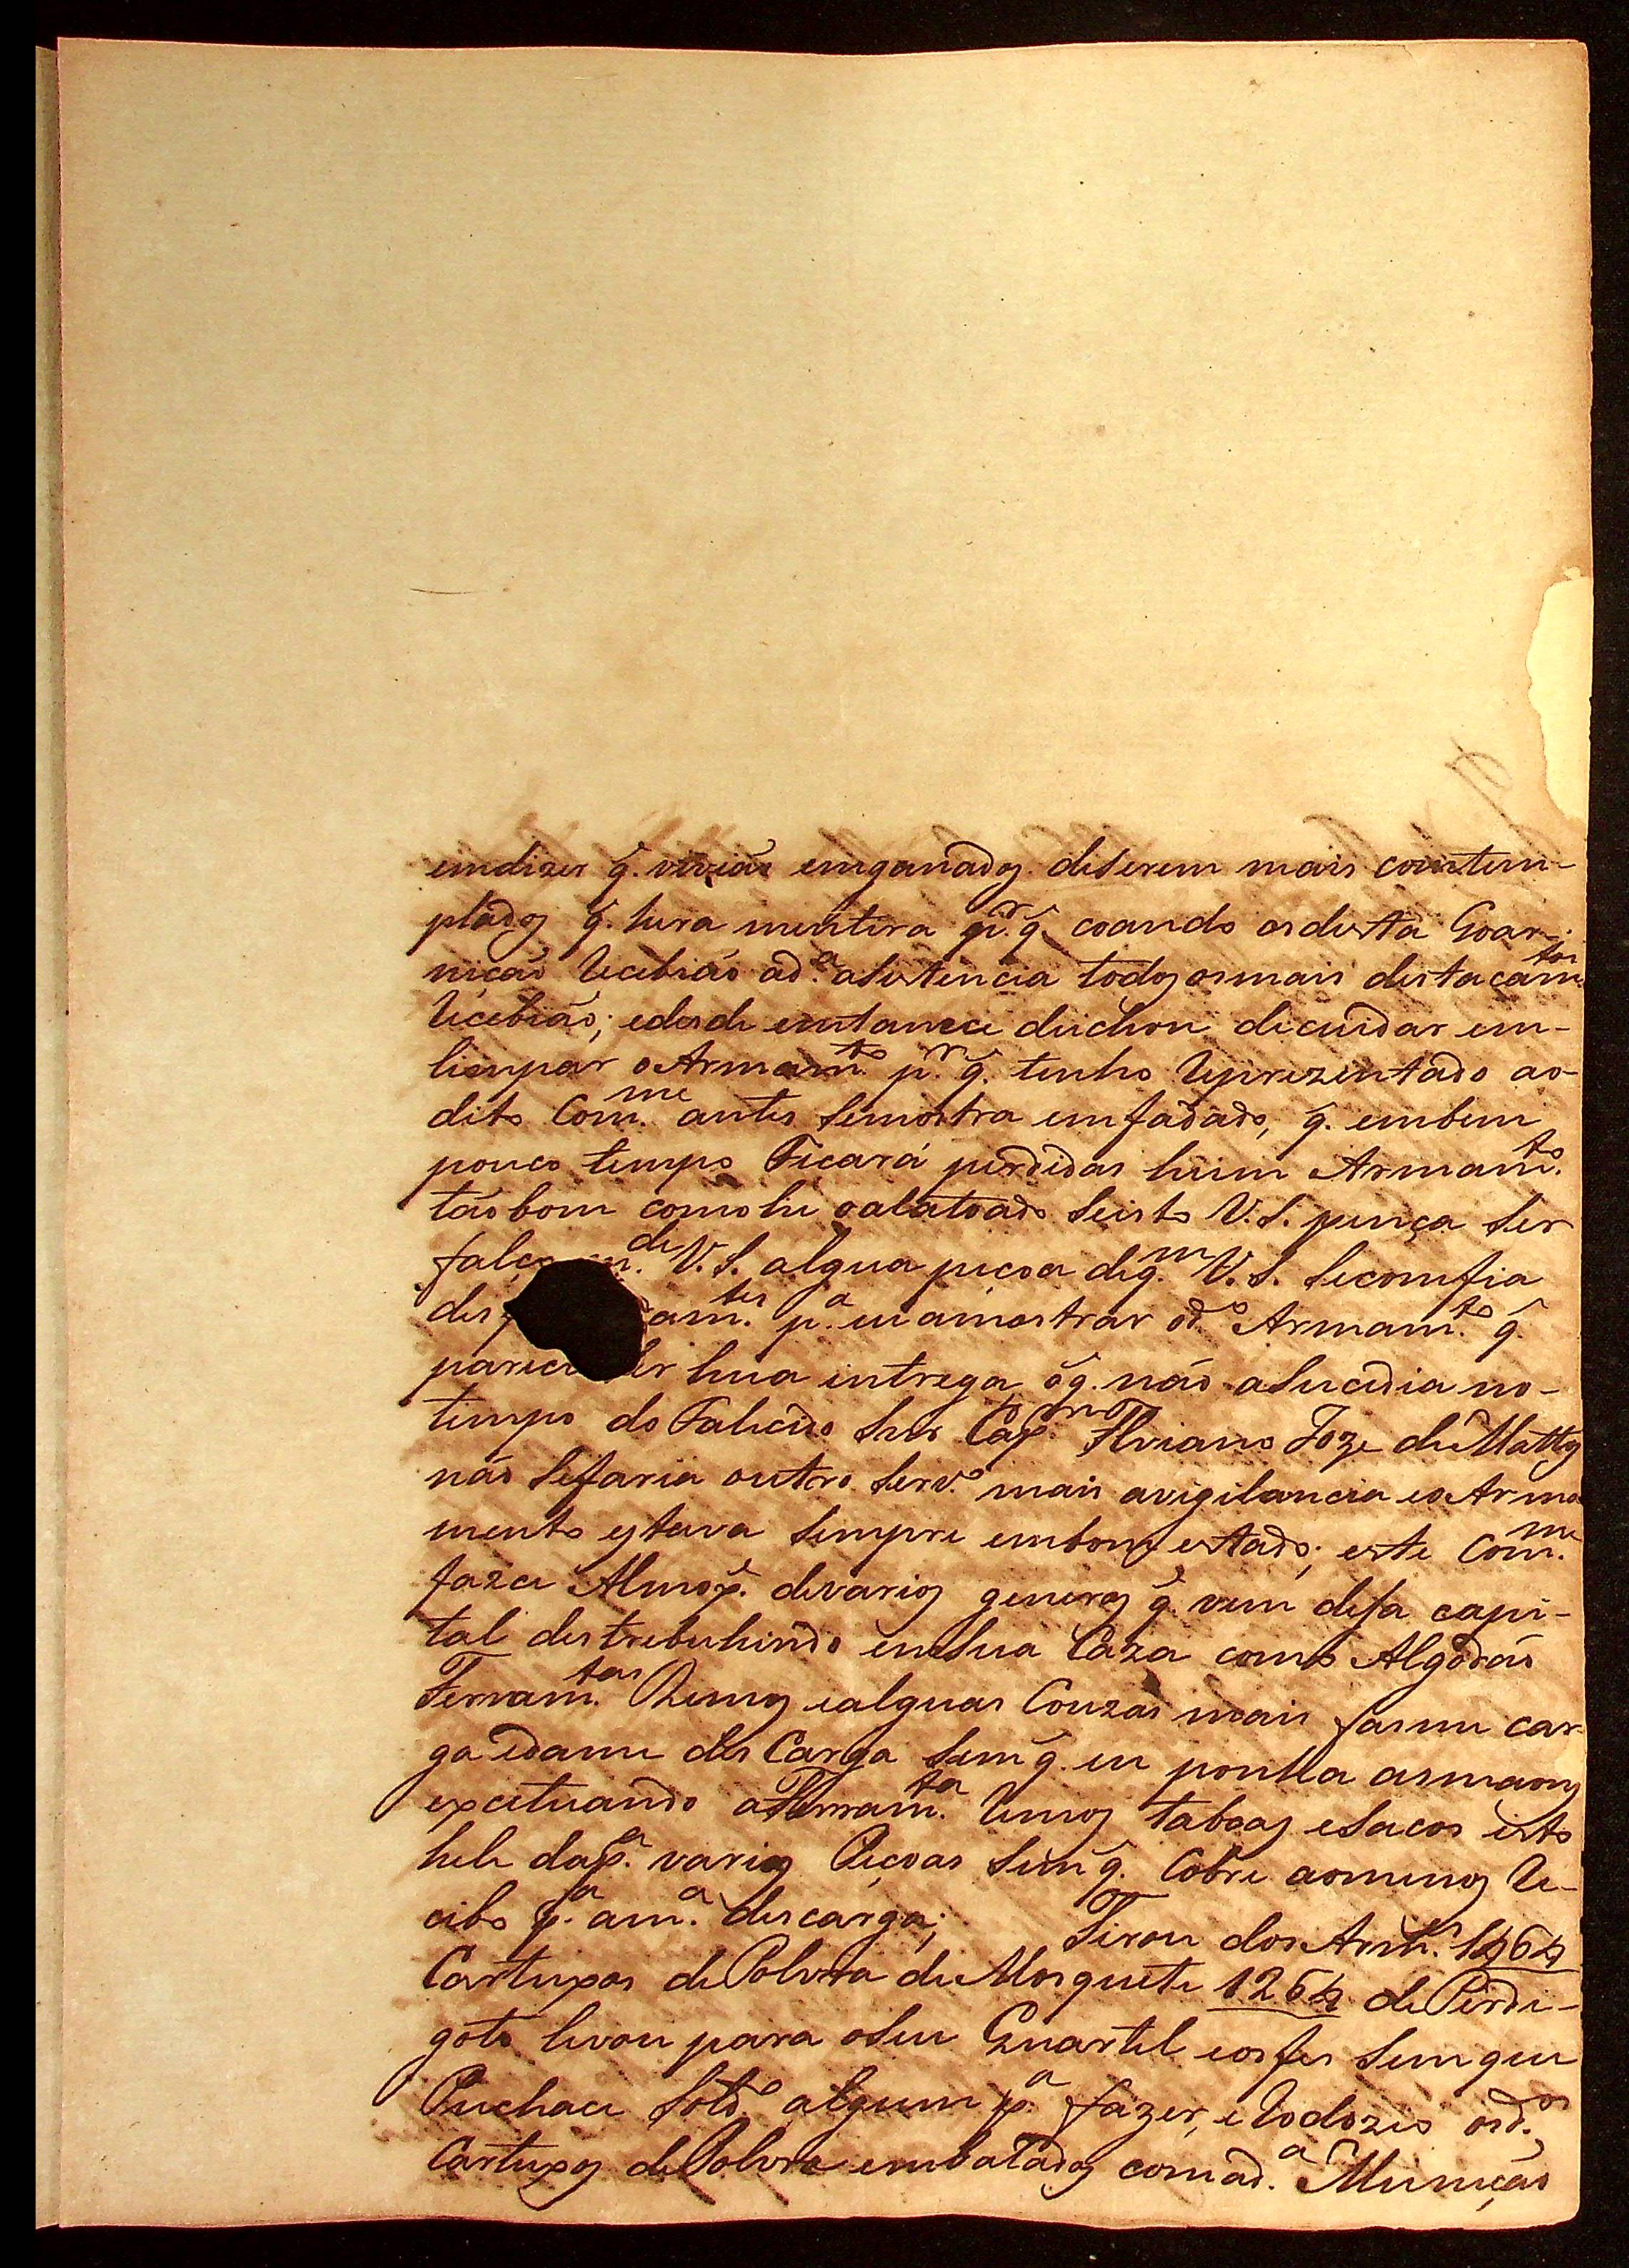 emdizer q̃. viviaõ emganados deserem mais comtem-
plados q̃. hera mentira p.r q̃. coando osdesta Goar-
niçaõ Recebiaõ ad.a asistencia todos osmais destacam.tos
Recebiaõ; edesde emtance deichou decuidar em-
limpar oArmam.to p.r q̃. tenho Reprezentado ao-
dito Com.me antes Semostra emfadado, q̃. embem
pouco tempo Ficará perdidas húm Armam.to
taõ bom como he oalatoado Seisto V.S. pença Ser
falço m.de V.S. algua peçoa deq.m V.S. Secomfia
des am.tes p.a eu amostrar od.o Armam.to q̃.
parece Ser hua intrega, oq̃. naõ aSucedia no-
tempo do Falicido Snr Cap.m Floriano Joze deMattos
naõ Sefaria outro Serv.o mais avigilancia eoArma
mento estava Sempre embom estado; este Com.me
fazce Almox.e devarios generos q̃. vem desa capi-
tal destrebuhindo emSua Caza como Algodaõ
Ferram.tas Remos ealguas Couzas mais, fasme car
ga edame des Carga Sem q̃. eu ponha asmaons
excetuando aFerram.ta Remos taboas eSacos isto
hele dap.a varias Peçoas Sem q̃. Cobre aomenos Re-
cibo p.a am.a descarga; Tirou dos Arm.s 1264
Cartuxos de Polvra de Mosquete 1264 de Perdi-
goto levou para oSeu Quartel eosfes Sem que
Puchace Sold.o algum p.a fazer, e Rodozio osd.os
Cartuxos de Polvra embalados comad.a Muniçaõ